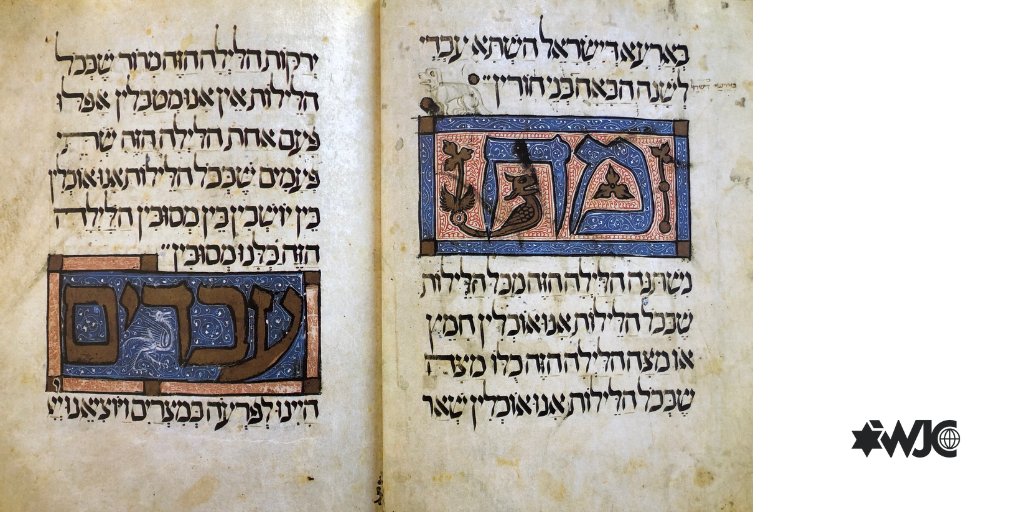 בארעא דישראל השתא עבדי
לשנה הבאה בני חורין״
מה
נשתנה הלילה הזה מכל הלילות
שבכל הלילות אנו אוכלין חמץ
או מצה הלילה הזה כלו מצה
שבכל הלילות אנו אוכלין שאר
ירקות הלילה הזה מרור שבכל
הלילות אין אנו מטבלין אפלו
פעם אחת הלילה הזה שתי
פעמים שבכל הלילות אנו אוכלין
בין יושבין בין מסובין הלילה
הזה כלנו מסובין״
עבדים
היינו לפרעה במצרים ויוציאנו
WJC